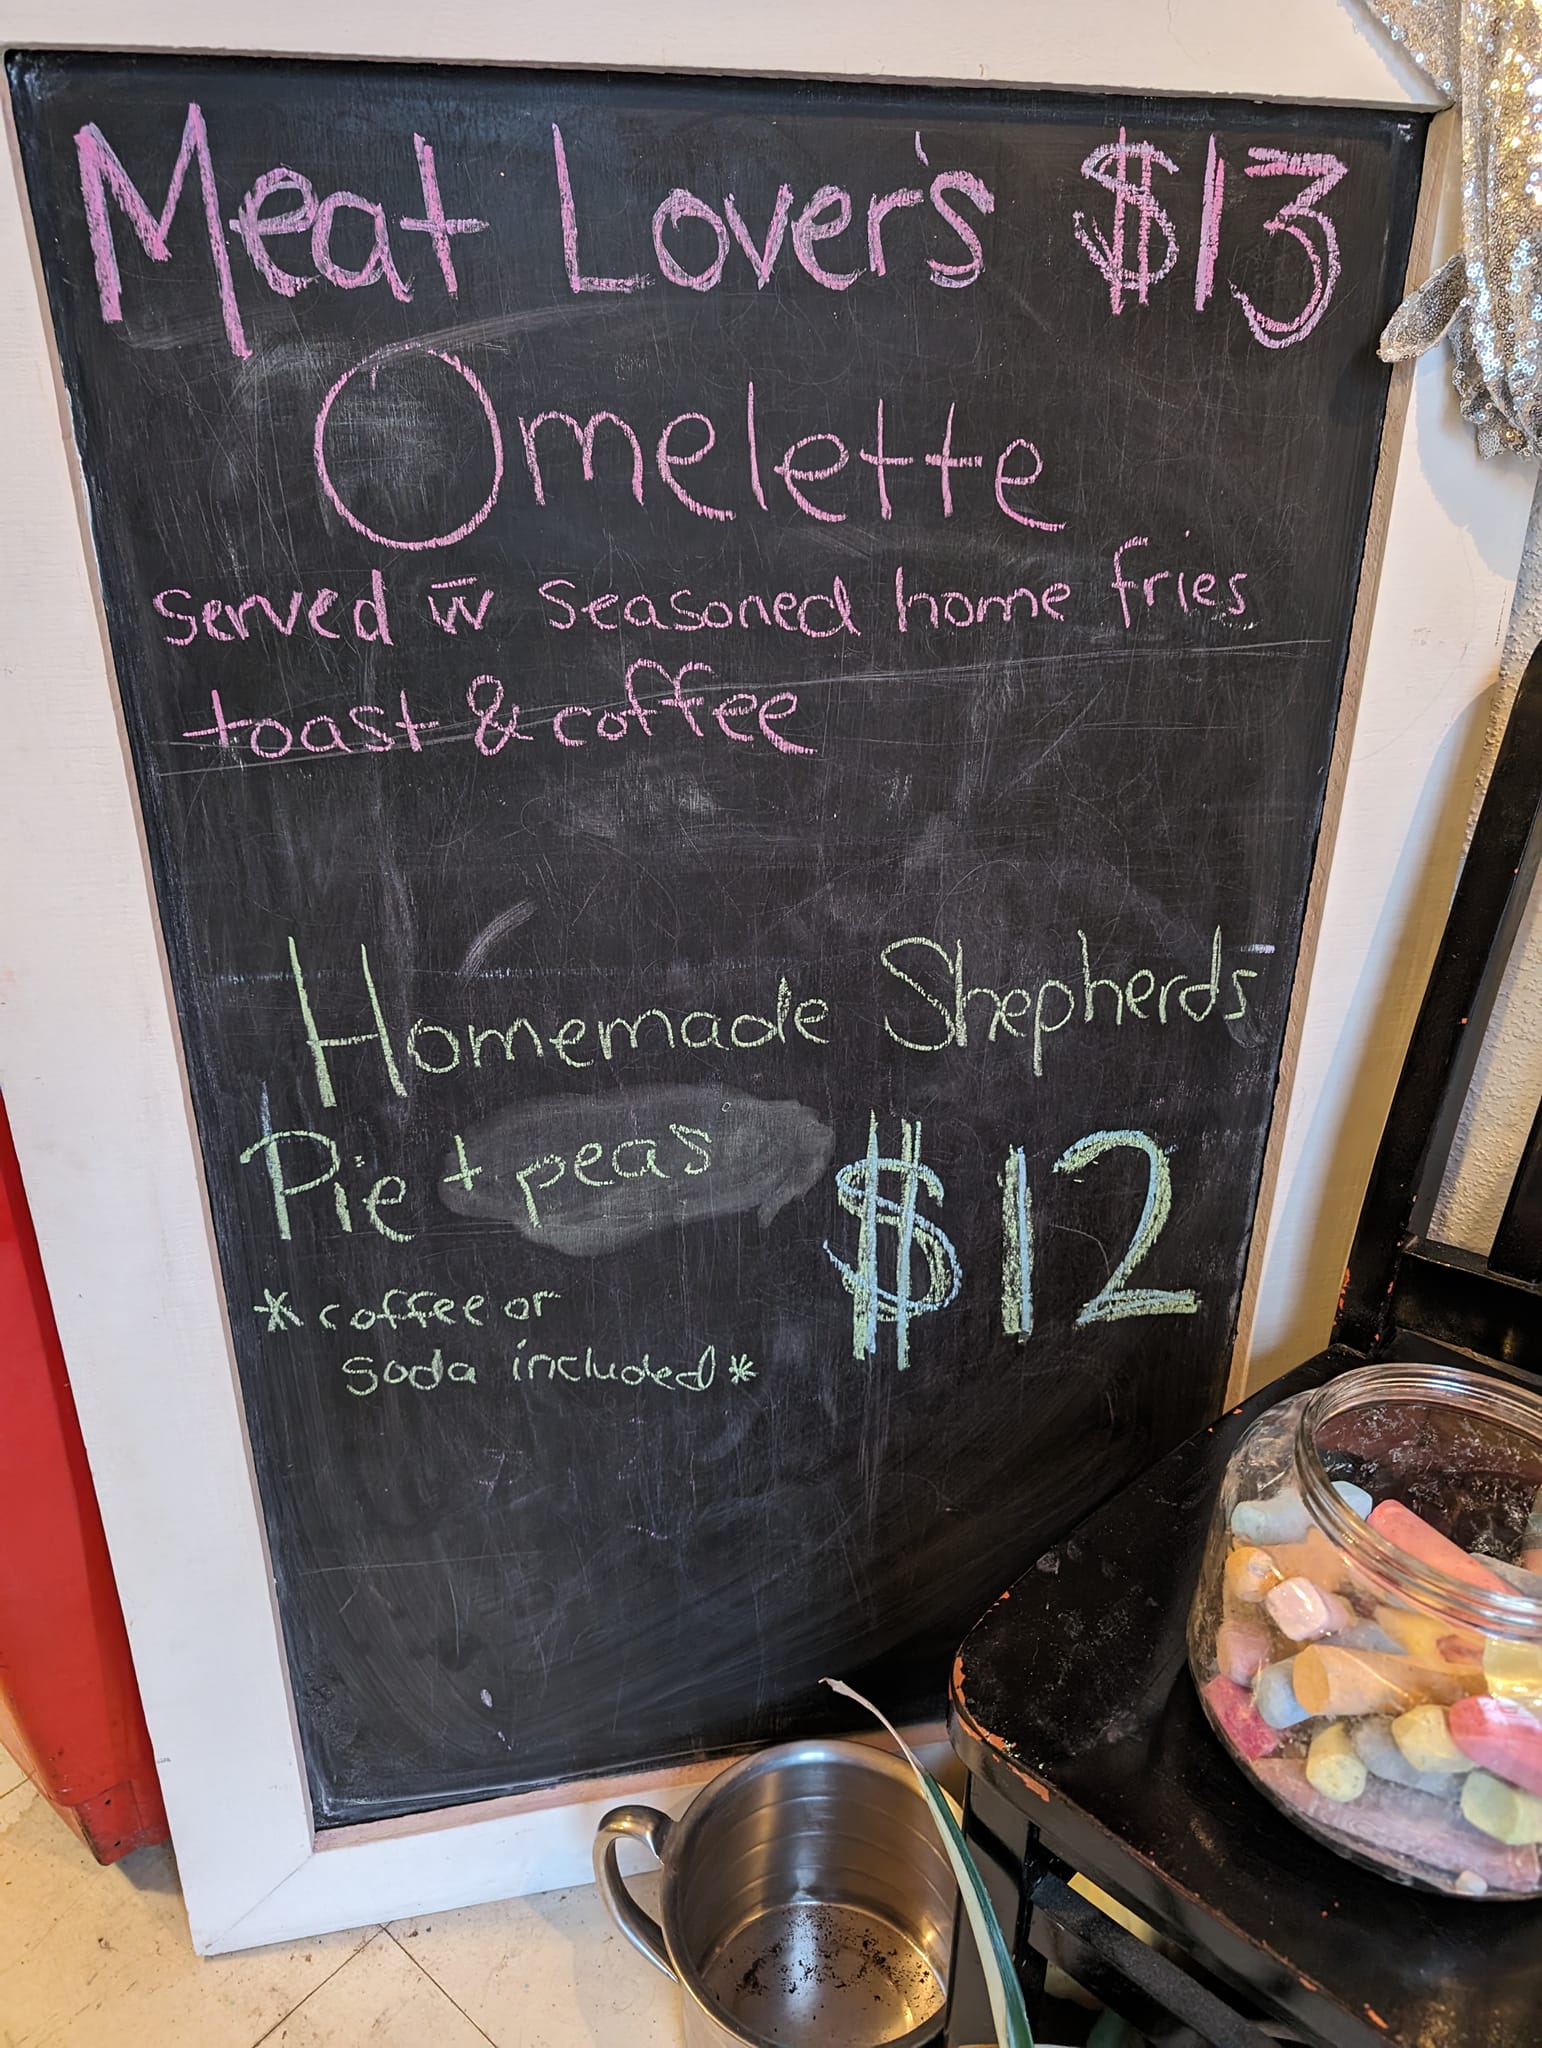 Meat Lover's $13
Omelette
served w̅ seasoned home fries
toast & coffee
Homemade Shepherd's
Pie + peas $12
* coffee or
soda included *